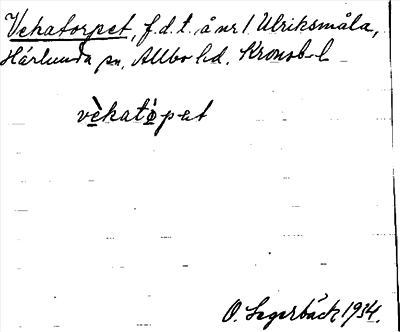 Vekatorpet, f.d.t. å nr 1 Ulriksmåla,
Härlunda sn, Allbo hd. Kronob. l
vèkatòpet
O. Segerbäck 1934.